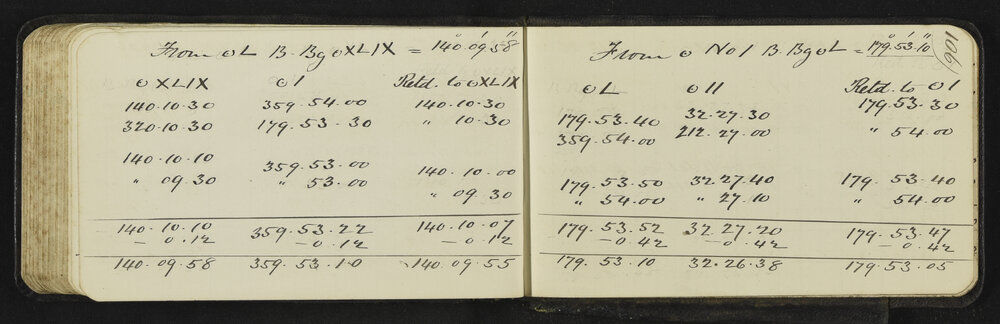 From o L B. Bg o XLIX = 140° 09' 58"
o XLIX o I Retd. to o XLIX
140.10.30 359.54.00 140.10.30
320.10.30 179.53.30 " 10.30
140.10.10 359.53.00 140.10.00
" 09.30 " 53.00 " 09.30
140.10.10 359.53.22 140.10.07
- 0.12 - 0.12 - 0.12
140.09.58 359.53.10 140.09.55
106
From o No I B. Bg o L = 179° 53' 10"
o L o II Retd. to o I
179.53.40 32.27.30 179.53.30
359.54.00 212.27.00 " 54.00
179.53.50 32.27.40 179.53.40
" 54.00 " 27.10 " 54.00
179.53.52 32.27.20 179.53.47
- 0.42 - 0.42 - 0.42
179.53.10 32.26.38 179.53.05